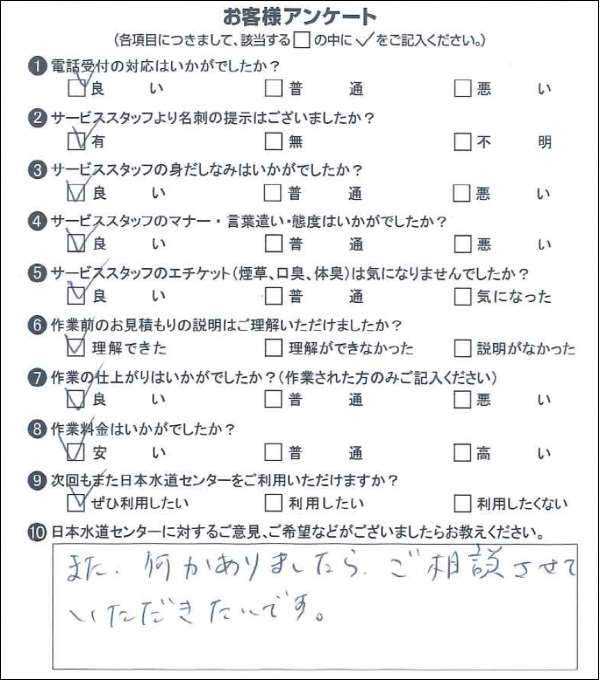 お客様アンケート
(各項目につきまして、該当する□の中に✓をご記入ください。)
❶電話受付の対応はいかがでしたか?
☑良い □普通 □悪い
❷サービススタッフより名刺の提示はございましたか?
☑有 □無 □不明
❸サービススタッフの身だしなみはいかがでしたか?
☑良い □普通 □悪い
❹サービススタッフのマナー・言葉遣い・態度はいかがでしたか?
☑良い □普通 □悪い
❺サービススタッフのエチケット(煙草、口臭、体臭)は気になりませんでしたか?
☑良い □普通 □気になった
❻作業前のお見積もりの説明はご理解いただけましたか?
☑理解できた □理解ができなかった □説明がなかった
❼作業の仕上がりはいかがでしたか?(作業された方のみご記入ください)
☑良い □普通 □悪い
❽作業料金はいかがでしたか?
☑安い □普通 □高い
❾次回もまた日本水道センターをご利用いただけますか?
☑ぜひ利用したい □利用したい □利用したくない
❿日本水道センターに対するご意見、ご希望などがございましたらお教えください。
また、何かありましたら、ご相談させて
いただきたいです。